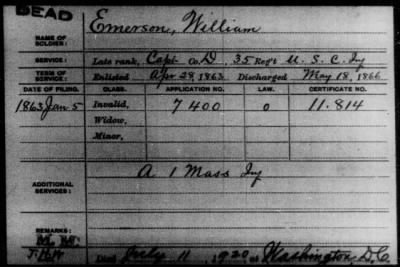 DEAD
NAME OF SOLDIER: Emerson, William
SERVICE: Late rank, Capt Co. D, 35 Reg't U. S. C. Inf
TERM OF SERVICE: Enlisted Apr 28, 1863 Discharged May 18, 1866
DATE OF FILING. CLASS. APPLICATION NO. LAW. CERTIFICATE NO.
1863 Jan 5 Invalid, 7400 0 11.814
Widow,
Minor,
ADDITIONAL SERVICES: A 1 Mass Inf
REMARKS:
Died July 11, 1920 at Washington D.C.